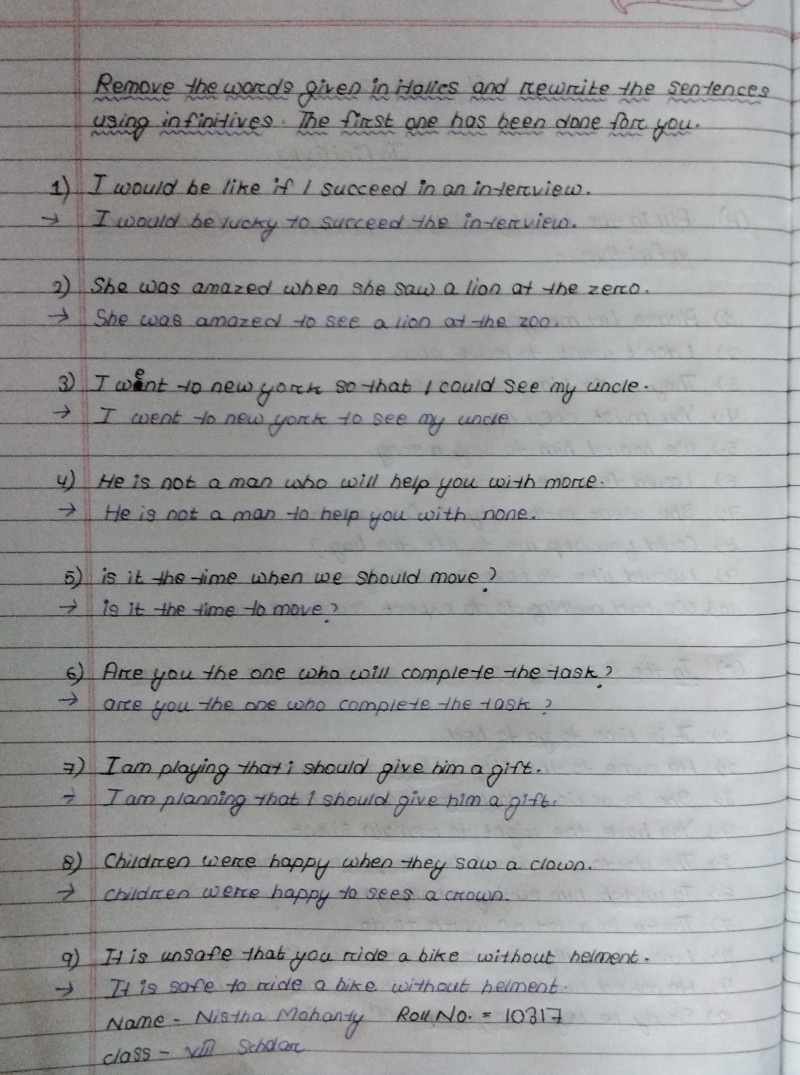 Remove the words given in italics and rewrite the sentences
using infinitives. The first one has been done for you.
1) I would be like if I succeed in an interview.
→ I would be lucky to succeed the interview.
2) She was amazed when she saw a lion at the zero.
→ She was amazed to see a lion at the zoo.
3) I went to new york so that I could see my uncle.
→ I went to new york to see my uncle
4) He is not a man who will help you with more.
→ He is not a man to help you with none.
5) is it the time when we should move?
→ is it the time to move?
6) Are you the one who will complete the task?
→ are you the one who complete the task?
7) I am playing that i should give him a gift.
→ I am planning that i should give him a gift.
8) Children were happy when they saw a clown.
→ children were happy to sees a crown.
9) It is unsafe that you ride a bike without helment.
→ It is safe to ride a bike without helment.
Name - Nistha Mohanty Roll No. = 10317
class - VIII Scholar